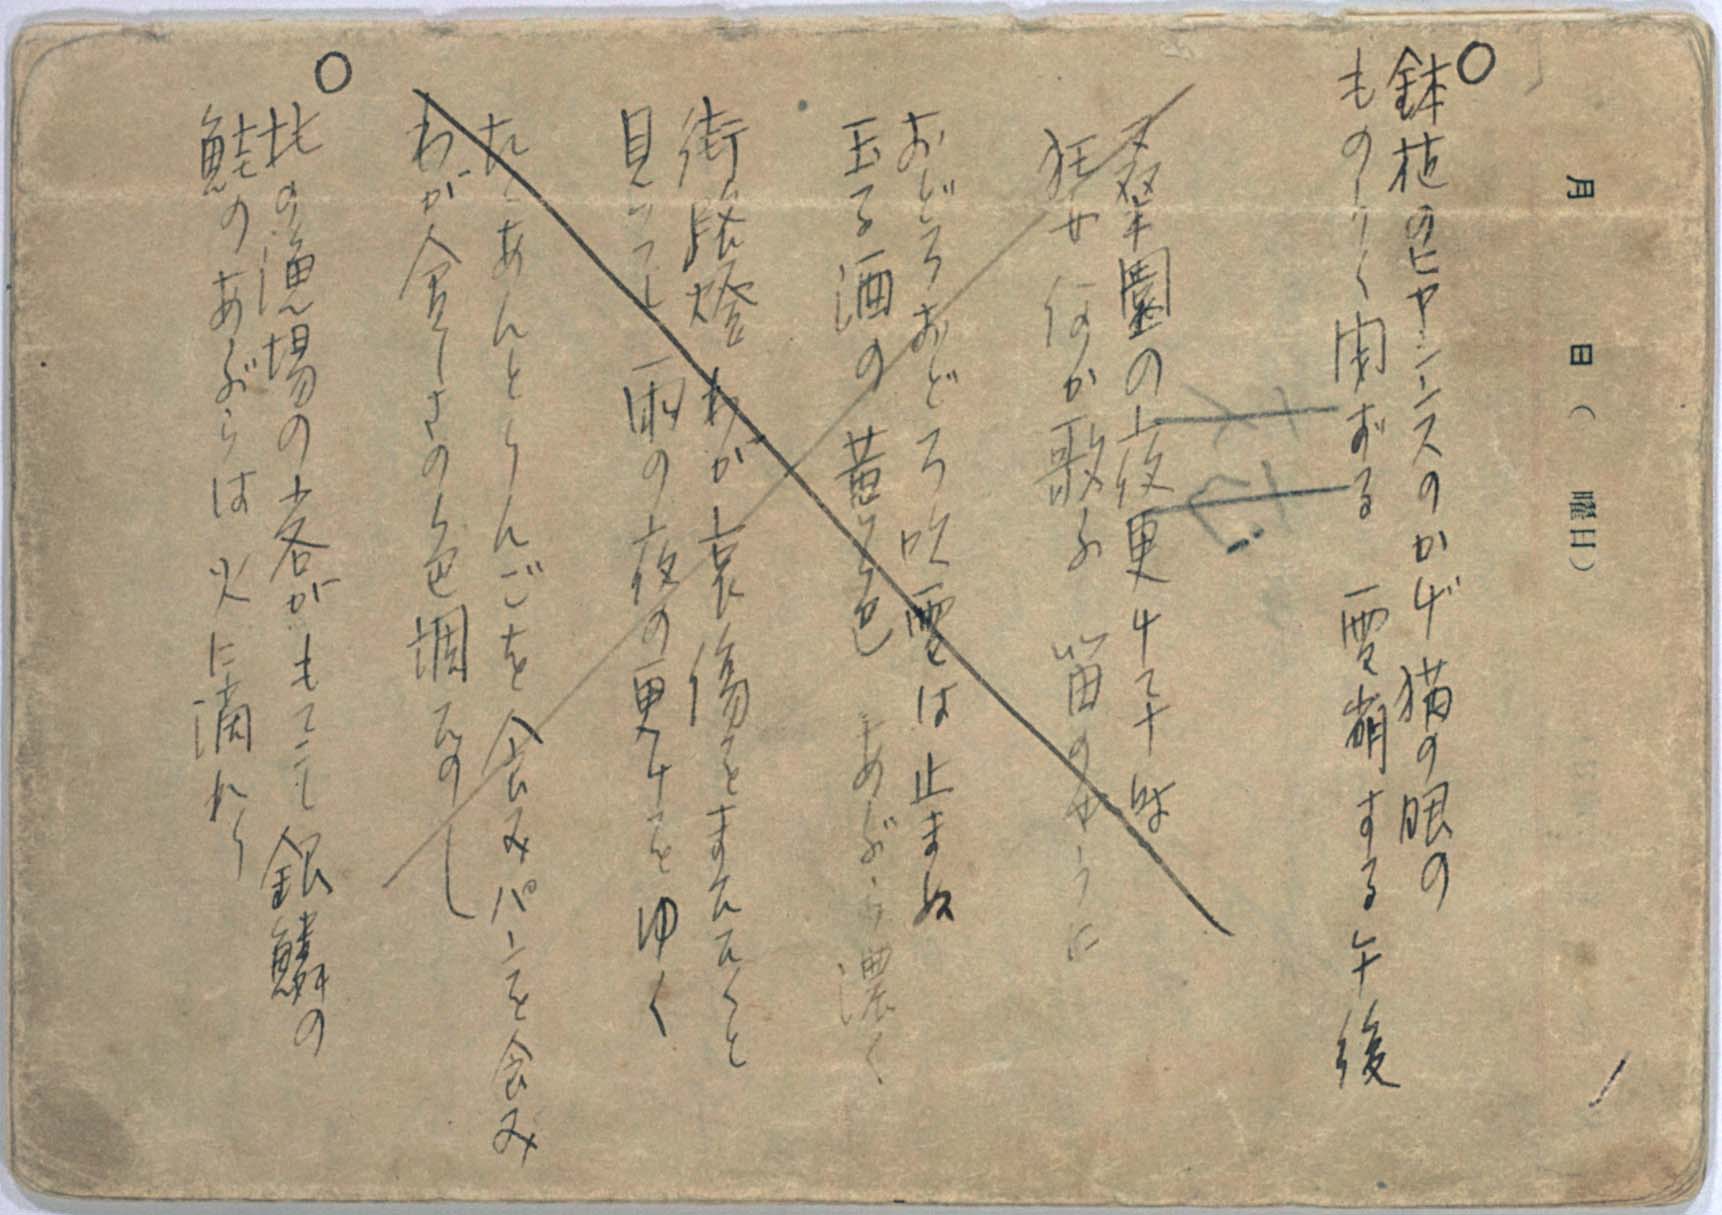 月 日（ 曜日）
○
鉢植のヒヤシンスのかげ猫の眼の
ものうく閉ぢる 雪崩する午後
翠園の夜更けて十時
狂せ何か歌ふ 笛のやうに
おどろおどろ吹雪は止まぬ
玉る酒の黄色 あぶら濃く
街路燈 わが哀傷をまたたくと
見つつし 雨の夜の更けをゆく
たくあんとりんごを食みパンを食み
わが食しさの色調たのし
○
北の漁場の若がもてこし銀鱗の
鮭のあぶらは火に滴れり